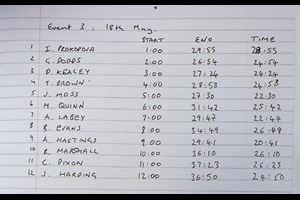 Event 3: 18th May.
START END TIME
1 I. PROKOPOVA 1:00 29:55 28:55
2 C. DODDS 2:00 26:54 24:54
3 D. KEALEY 3:00 27:24 24:24
4 T. BROWN 4:00 28:53 24:53
5 J. MOSS 5:00 27:30 22:30
6 M. QUINN 6:00 31:42 25:42
7 A. LABEY 7:00 29:47 22:47
8 B. EVANS 8:00 34:49 26:49
9 A. HASTINGS 9:00 29:41 20:41
10 R. MARSHALL 10:00 36:10 26:10
11 C. DIXON 11:00 37:23 26:23
12 J. HARDING 12:00 36:50 24:50